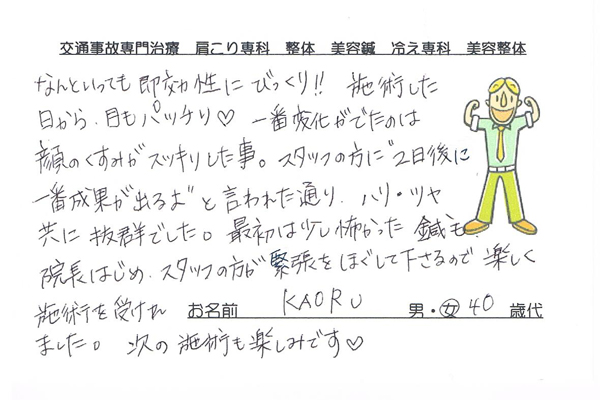 交通事故専門治療 肩こり専科 整体 美容鍼 冷え専科 美容整体
なんといっても即効性にびっくり!! 施術した
日から、目もパッチリ♡ 一番変化がでたのは
顔のくすみがスッキリした事。スタッフの方に"2日後に
一番成果が出るよ"と言われた通り、ハリ・ツヤ
共に抜群でした。最初は少し怖かった鍼も
院長はじめ、スタッフの方が緊張をほぐして下さるので楽しく
施術を受けれ お名前 KAORU 男・女 40 歳代
ました。次の施術も楽しみです♡